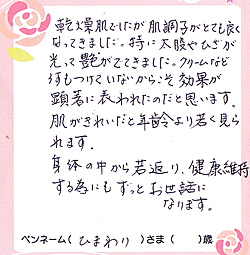 乾燥肌でしたが肌調子がとても良く
なってきました。特に太腿やひざが
光って艶がでてきました。クリームなど
何もつけていないからこそ効果が
顕著に表われたのだと思います。
肌がきれいだと年齢より若く見ら
れます。
身体の中から若返り、健康維持
する為にもずっとお世話に
なります。
ペンネーム( ひまわり )さま( )歳